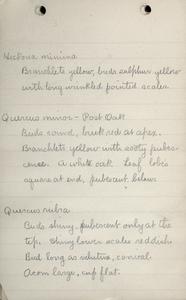 Hickoria minima
Branchlets yellow, buds sulphur yellow
with long wrinkled pointed scales.
Quercus minor - Post Oak
Buds round, brick red at apex.
Branchlets yellow with sooty pubes-
cence. A white oak Leaf lobes
square at end, pubescent below.
Quercus rubra
Buds shiny, pubescent only at the
tip. Shiny lower scales reddish.
Bud long as velutina, conical.
Acorn large, cup flat.